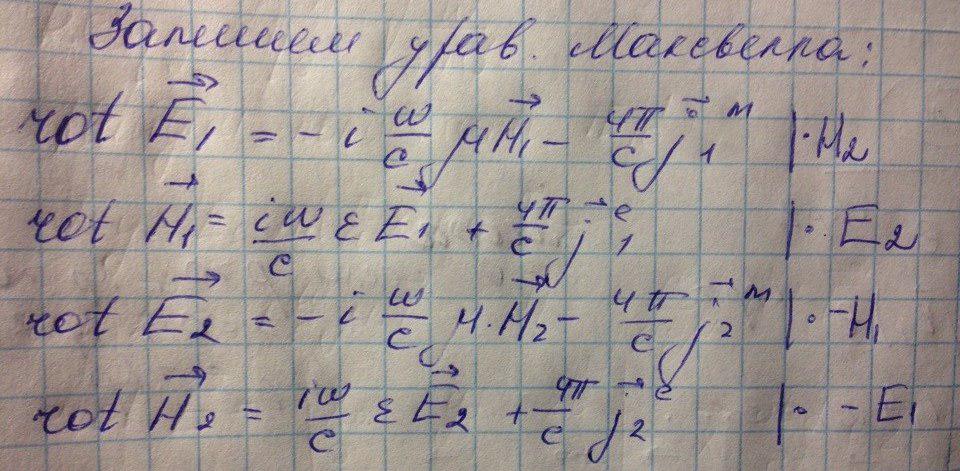 Запишем урав. Максвелла:
rot E⃗₁ = - i ω/c μH⃗₁ - 4π/c j⃗₁ᵐ | · H₂
rot H⃗₁ = iω/c εE⃗₁ + 4π/c j⃗₁ᵉ | · E₂
rot E⃗₂ = - i ω/c μ · H⃗₂ - 4π/c j⃗₂ᵐ | · -H₁
rot H⃗₂ = iω/c εE⃗₂ + 4π/c j⃗₂ᵉ | · - E₁